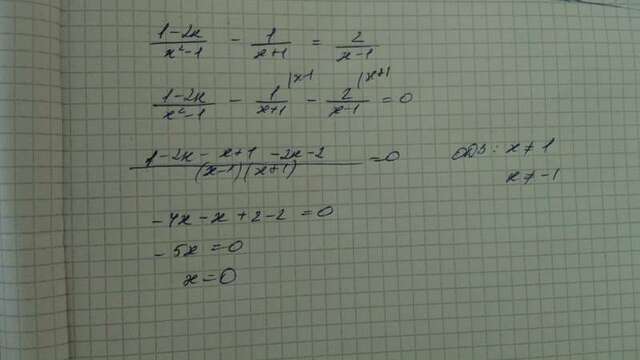 (1-2x)/(x²-1) - 1/(x+1) = 2/(x-1)
(1-2x)/(x²-1) - 1/(x+1) |x-1 - 2/(x-1) |x+1 = 0
(1-2x - x+1 - 2x-2)/((x-1)(x+1)) = 0 ОДЗ: x ≠ 1
x ≠ -1
-4x - x + 2 - 2 = 0
-5x = 0
x = 0